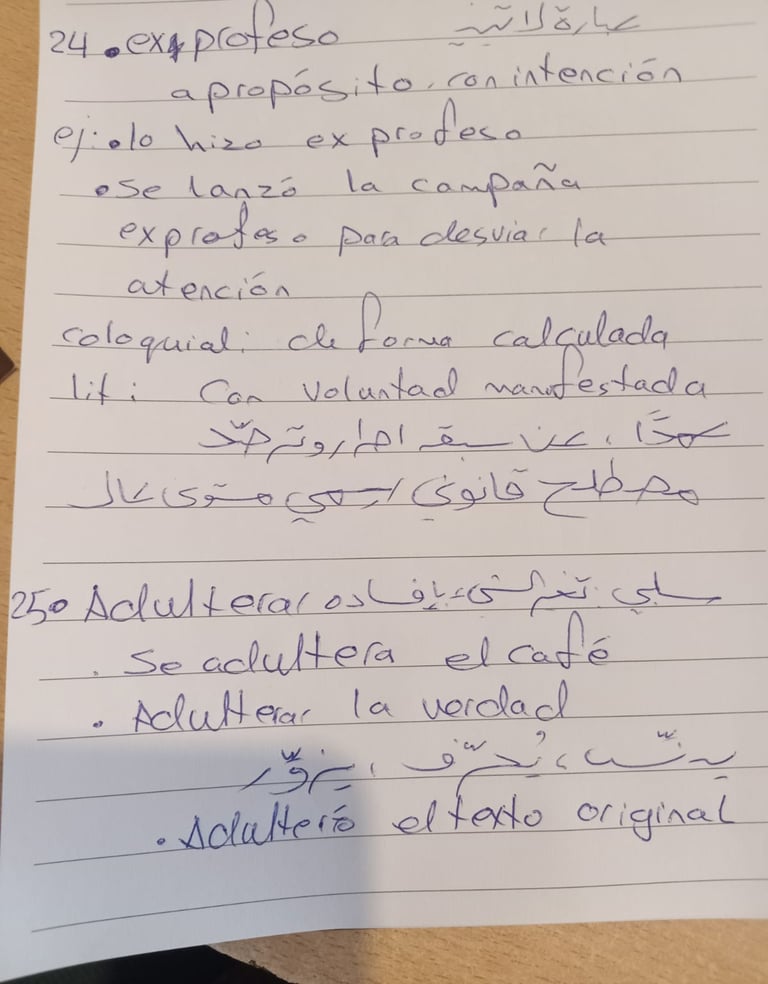 24. ex profeso عبارة لاتينية
a propósito, con intención
ej: • lo hizo ex profeso
• Se lanzó la campaña
ex profeso para desviar la
atención
coloquial: de forma calculada
lit: Con voluntad manifestada
عمدًا، عن سبق إصرار وترصّد
مصطلح قانوني رسمي مستوى عال
25. Adulterar سلبي تغير الشيء بإفساده
. Se adultera el café
. Adulterar la verdad
يغشّ، يُحرّف، يزوّر
. Adulteró el texto original